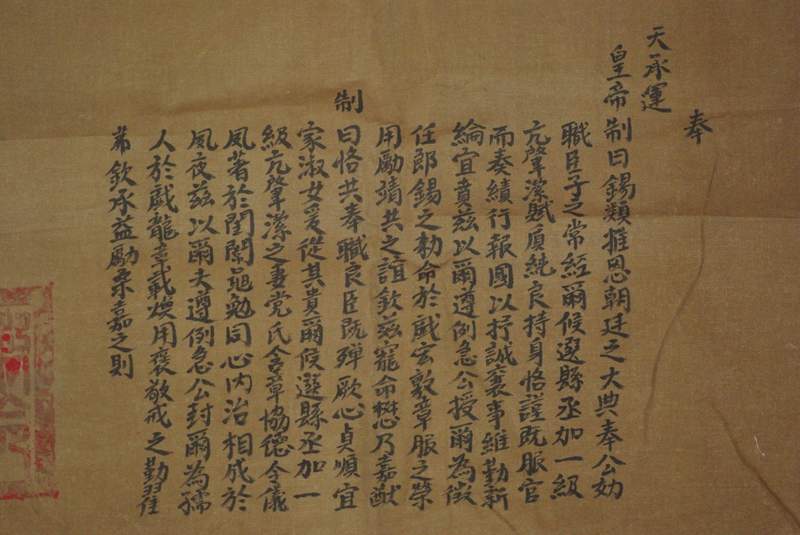 奉
天承運
皇帝制曰錫類推恩朝廷之大典奉公効
職臣子之常經爾候選縣丞加一級
亢肇潔賦质純良持身恪謹既服官
而奏績行報國以抒誠襄事維勤新
綸宜賁兹以爾遵例急公授爾為徵
仕郎錫之勅命於戲宏敷章服之榮
用勵靖共之誼欽兹寵命懋乃嘉猷
制
曰恪共奉職良臣既殫厥心貞順宜
家淑女爰從其貴爾候選縣丞加一
級亢肇潔之妻党氏含章協德令儀
夙著於閨閫黽勉同心内治相成於
夙夜兹以爾夫遵例急公封爾為孺
人於戲龍章載煥用褒敬戒之勤翟
茀欽承益勵柔嘉之則